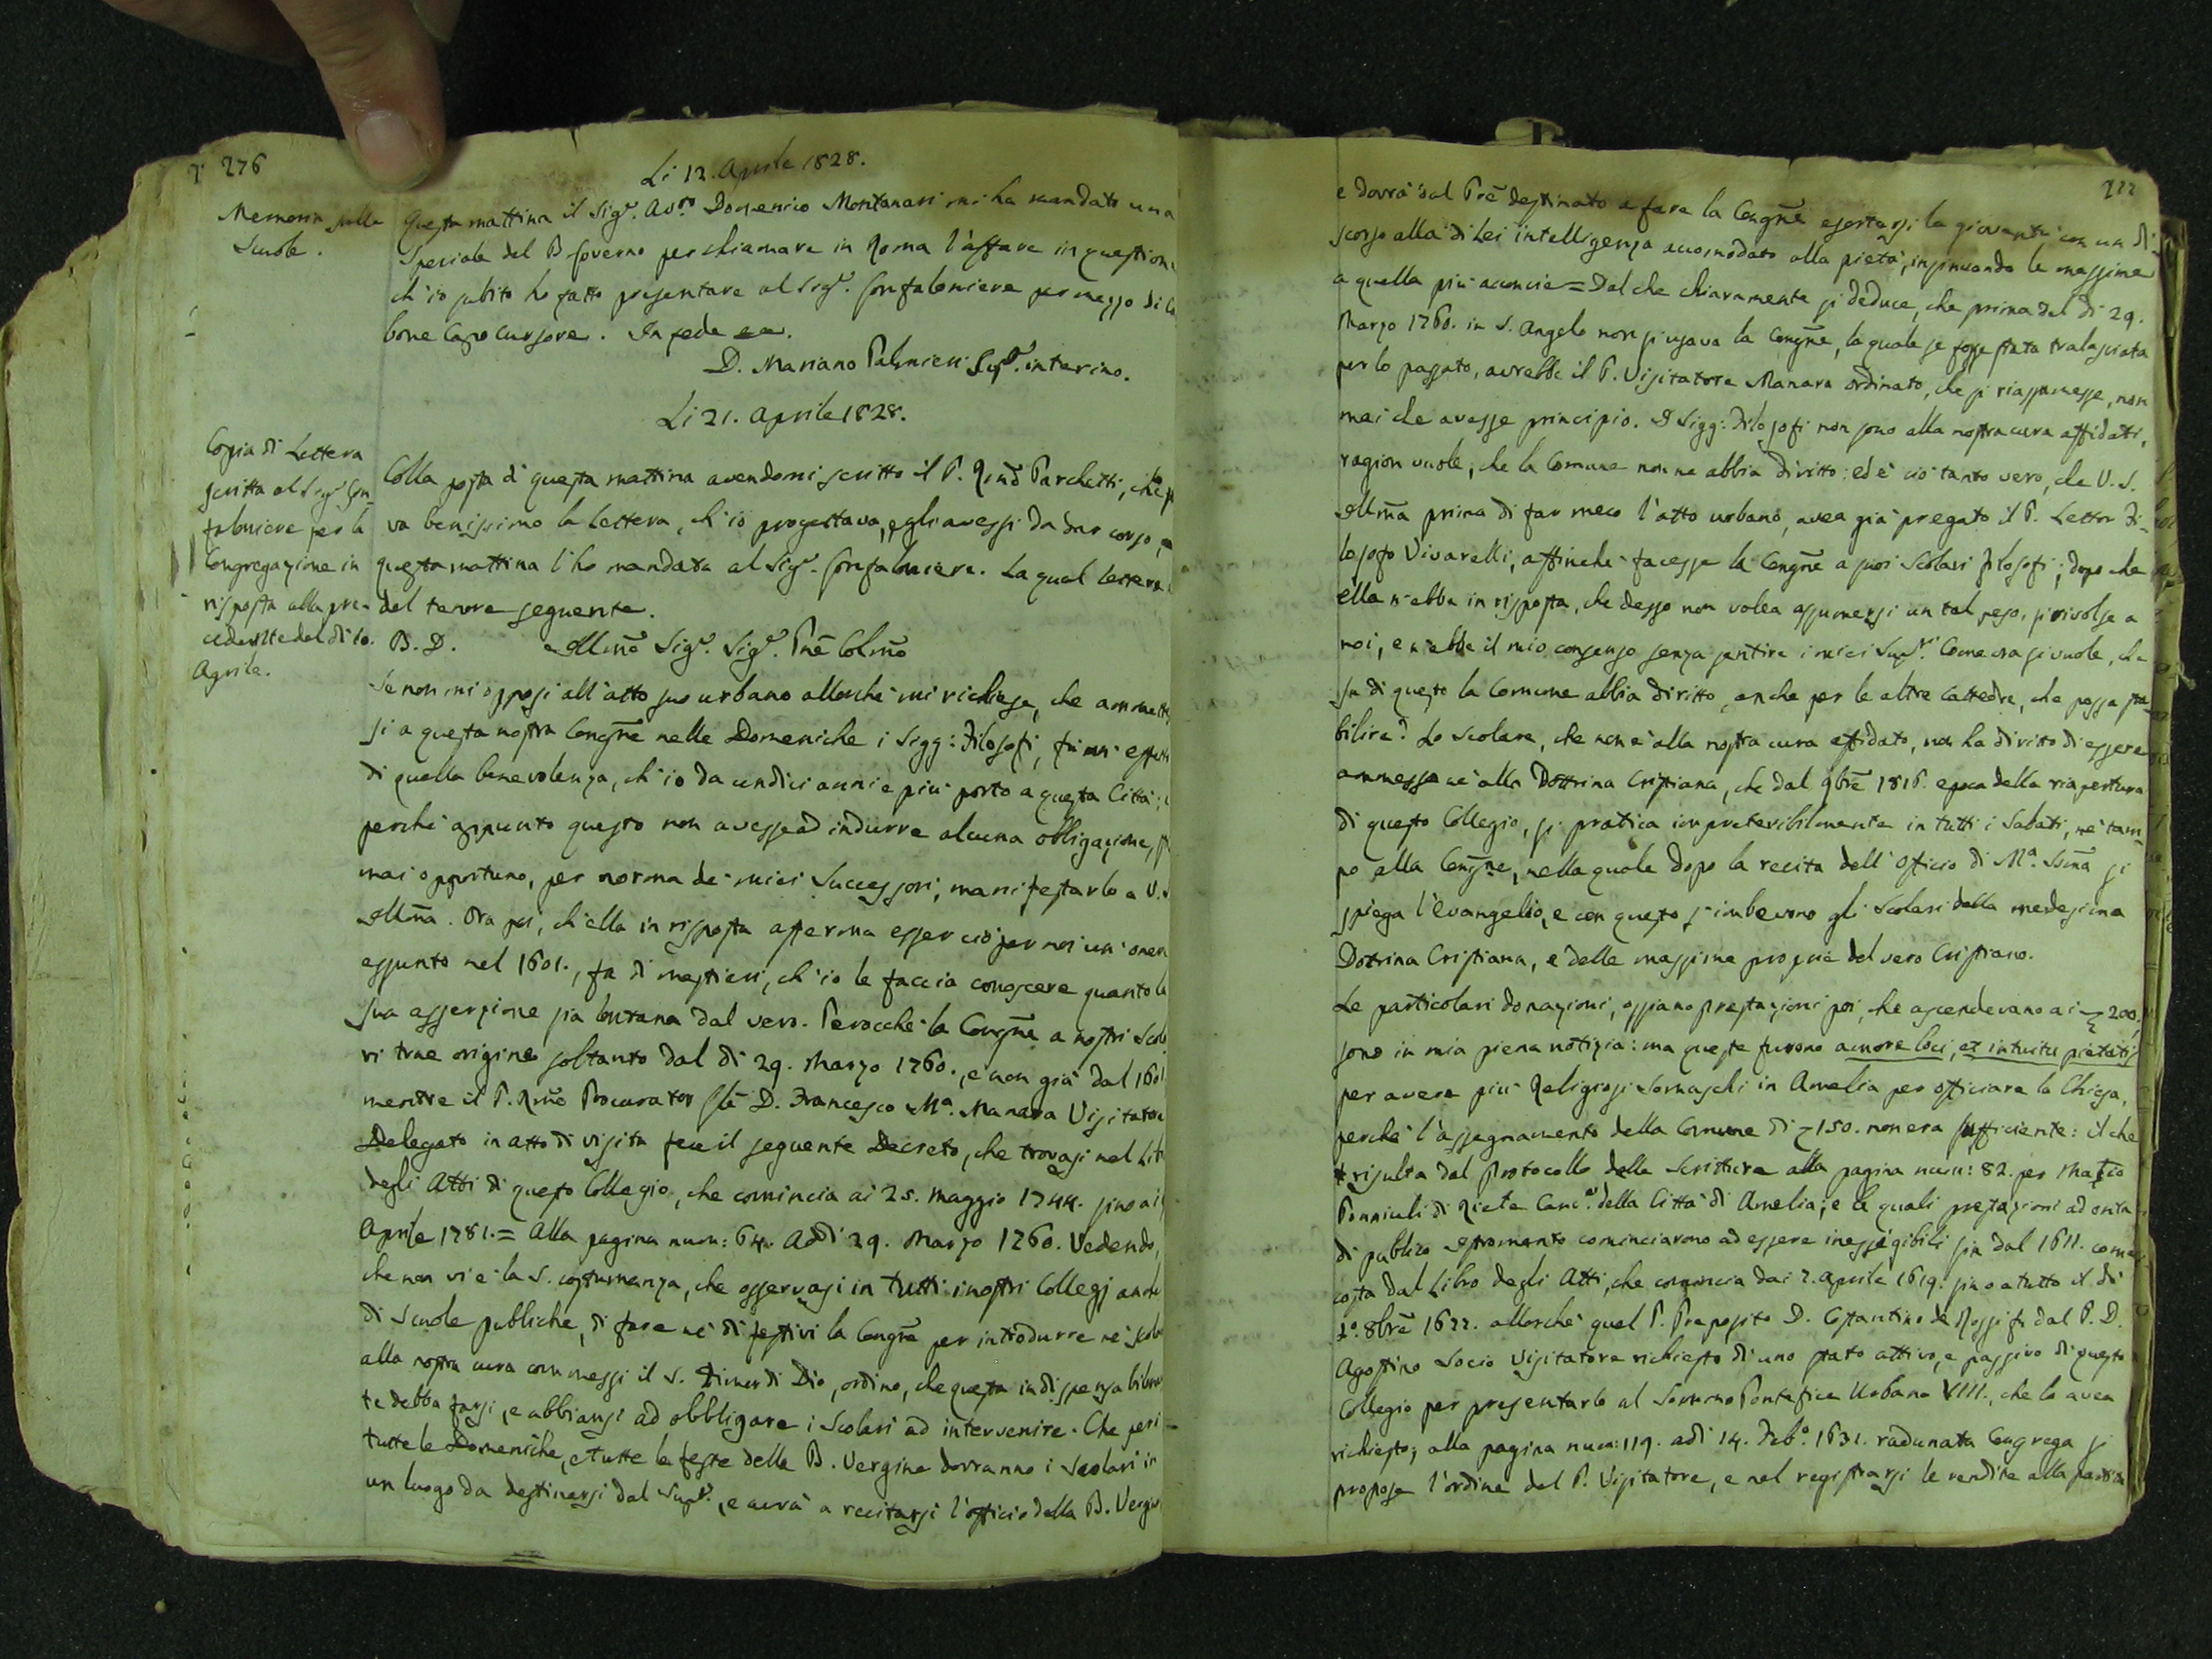 276
Li 12. Aprile 1828.
Memoria sulle
Scuole.
Questa mattina il Sigr. Avvo Domenico Montanari mi ha mandato una
Speciale del B Governo per chiamare in Roma l'affare in question
ch'io subito ho fatto presentare al Sigr. Gonfaloniere per mezzo di
bone Capo Cursore. In fede
D. Mariano Palmieri Supr. interino.
Li 21. Aprile 1828.
Copia di Lettera
scritta al Sigr Gon
faloniere per la
Congregazione in
risposta alla pre-
cedente del dì 10.
Aprile.
Colla posta di questa mattina avendomi scritto il P. Rmo Parchetti, che
va benissimo la lettera, ch'io progettava, e gli avessi da dar corso,
questa mattina l'ho mandata al Sigr. Gonfaloniere. La qual lettera
del tenore seguente.
B. D. Illmo Sigr. Sigr. Pne Colmo
Se non mi opposi all'atto suo urbano allorchè mi richiese, che ammett
si a questa nostra Congne nelle Domeniche i Sigg: Filosofi, fu un' effett
di quella benevolenza, ch'io da undici anni e più porto a questa Città;
perchè appunto questo non avesse ad indurre alcuna obbligazione,
mai opportuno, per norma de' miei Successori, manifestarlo a V.
Illma. Ora poi, ch'ella in risposta afferma esser ciò per noi un' oner
assunto nel 1601., fa di mestieri, ch'io le faccia conoscere quanto la
sua asserzione sia lontana dal vero. Perocchè la Congne a nostri Scola
ri trae origine soltanto dal dì 29. Marzo 1760., e non già dal 1601
mentre il P. Rmo Procurator Gle D. Francesco Ma. Manara Visitatore
Delegato in atto di visita fece il seguente Decreto, che trovasi nel Lib
degli Atti di questo Collegio, che comincia ai 25. Maggio 1744. sino ai
Aprile 1781. = Alla pagina num: 64. Addì 29. Marzo 1760. Vedendo,
che non vi è la S. costumanza, che osservasi in tutti i nostri Collegj anche
di Scuole pubbliche, di fare ne' dì festivi la Congne per introdurre ne' Scola
alla nostra cura commessi il S. Timor di Dio, ordino, che questa indispensabilmen
te debba farsi, e abbiansi ad obbligare i Scolari ad intervenire. Che peri-
tutte le Domeniche, e tutte le feste della B. Vergine dovranno i Scolari in
un luogo da destinarsi dal Supr., e avrà a recitarsi l'officio della B. Vergin
277
e dovrà sul Pre destinato a fare la Congne esortarsi la gioventù con un di-
scorso alla di Lei intelligenza accomodato alla pietà, insinuando le massime
a quella più acconcie = Dal che chiaramente si deduce, che prima del dì 29.
Marzo 1760. in S. Angelo non si usava la Congne, la quale se fosse stata tralasciata
per lo passato, avrebbe il P. Visitatore Manara ordinato, che si riassumesse, non
mai che avesse principio. I Sigg: Filosofi non sono alla nostra cura affidati,
ragion vuole, che la Comune non ne abbia diritto: ed è ciò tanto vero, che V. S.
Illma prima di far meco l'atto urbano, avea già pregato il P. Lettor Fi-
losofo Vivarelli, affinchè facesse la Congne a suoi Scolari filosofi; dopo che
ella n'ebbe in risposta, che desso non volea assumersi un tal peso, si rivolse a
noi, e n'ebbe il mio consenso senza sentire i miei Supri. Come ora si vuole, che
su di questo la Comune abbia diritto, anche per le altre Cattedre, che possa sta-
bilire? Lo Scolare, che non è alla nostra cura affidato, non ha diritto di essere
ammesso nè alla Dottrina Cristiana, che dal 9bre 1816. epoca della riapertura
di questo Collegio, si pratica impreteribilmente in tutti i Sabati, nè tam-
po alla Congne, nella quale dopo la recita dell'Officio di Ma. Ssma si
spiega l'Evangelio, e con questo s'imbevono gli Scolari della medesima
Dotrina Cristiana, e delle massime proprie del vero Cristiano.
Le particolari donazioni, ossiano prestazioni poi, che ascendevano ai 200.,
sono in mia piena notizia: ma queste furono amore loci, et intuitu pietatis
per avere più Religiosi Somaschi in Amelia per officiare la Chiesa,
perchè l'assegnamento della Comune di 150. non era sufficiente: il che
risulta dal Protocollo della Scritture alla pagina num: 82. per Mazio
di Riete Cancre. della Città di Amelia; e le quali prestazioni ad onta
di pubblico istromento cominciarono ad essere inessigibili sin dal 1611. come
costa dal Libro degli Atti, che comincia dai 2. Aprile 1619. sino a tutto il dì
1o. 8bre 1622. allorchè quel P. Preposito D. Costantino de Rossi fu dal P. D.
Agostino Socio Visitatore richiesto di uno stato attivo, e passivo di questo
Collegio per presentarlo al Sommo Pontefice Urbano VIII., che lo avea
richiesto; alla pagina num: 119. adì 14. Febo. 1631. radunata Congrega si
propose l'ordine del P. Visitatore, e nel registrarsi le rendite alla partita